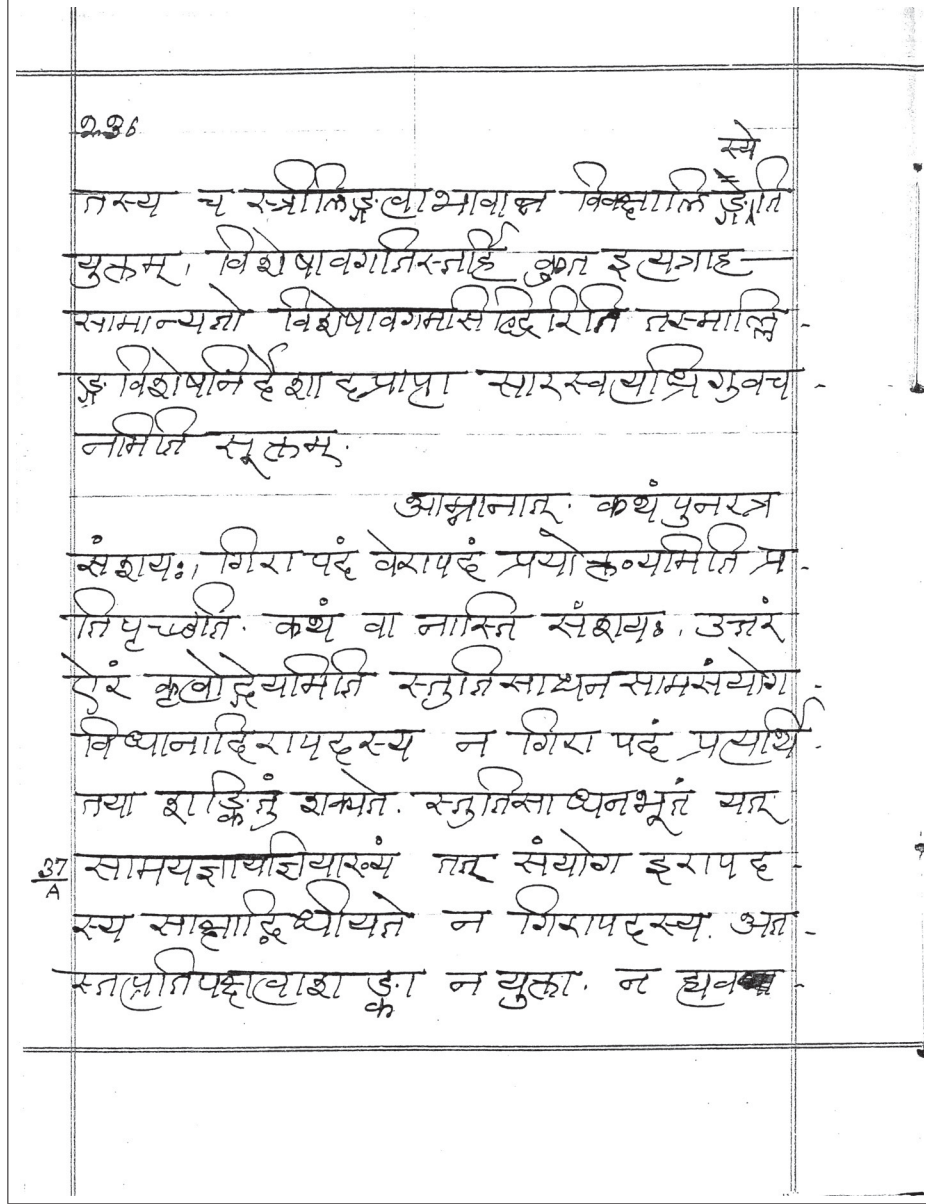 236
स्ये
तस्य च स्त्रीलिङ्गत्वाभावान्न विवक्षालिङ्गेति
युक्तम्. विशेषावगतिस्तर्हि कुत इत्यत्राह —
सामान्यतो विशेषावगमसिद्धिरिति तस्माल्लि -
ङ्गविशेषनिर्देशादप्राप्ता सारस्वत्यध्रिगुवच -
नमिति सूक्तम्.
आम्नानात्. कथं पुनरत्र
संशयः, गिरापदं वेरापदं प्रयोक्तव्यमिति प्र -
तिपृच्छति. कथं वा नास्ति संशयः. उत्तरं
ऐरं कृत्वोद्गेयमिति स्तुतिसाधनसामसंयोग -
विधानादिरापदस्य न गिरापदं प्रत्यर्थि -
तया शङ्कितुं शक्यते. स्तुतिसाधनभूतं यत्
सामयज्ञायज्ञियाख्यं तत् संयोग इरापद -
37/A
स्य साक्षाद्विधीयते न गिरापदस्य. अत -
स्तत्प्रतिपक्षत्वाशङ्का न युक्ता. न ह्यव -